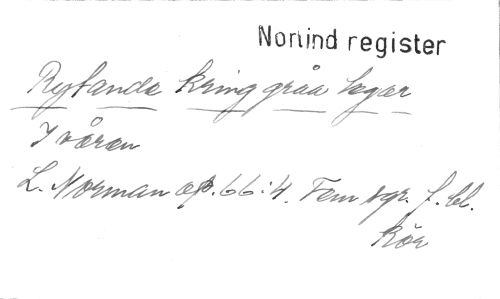 Norlind register
Rytande kring gråa hagar
I våren
L. Norman op. 66:4. Fem sgr. f. bl.
kör